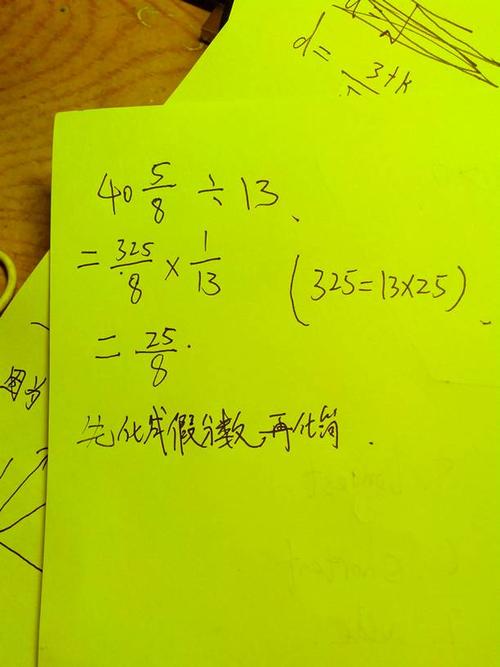 d = 3+k
40 5/8 ÷ 13
= 325/8 × 1/13
(325=13×25)
= 25/8.
先化成假分数,再化简.